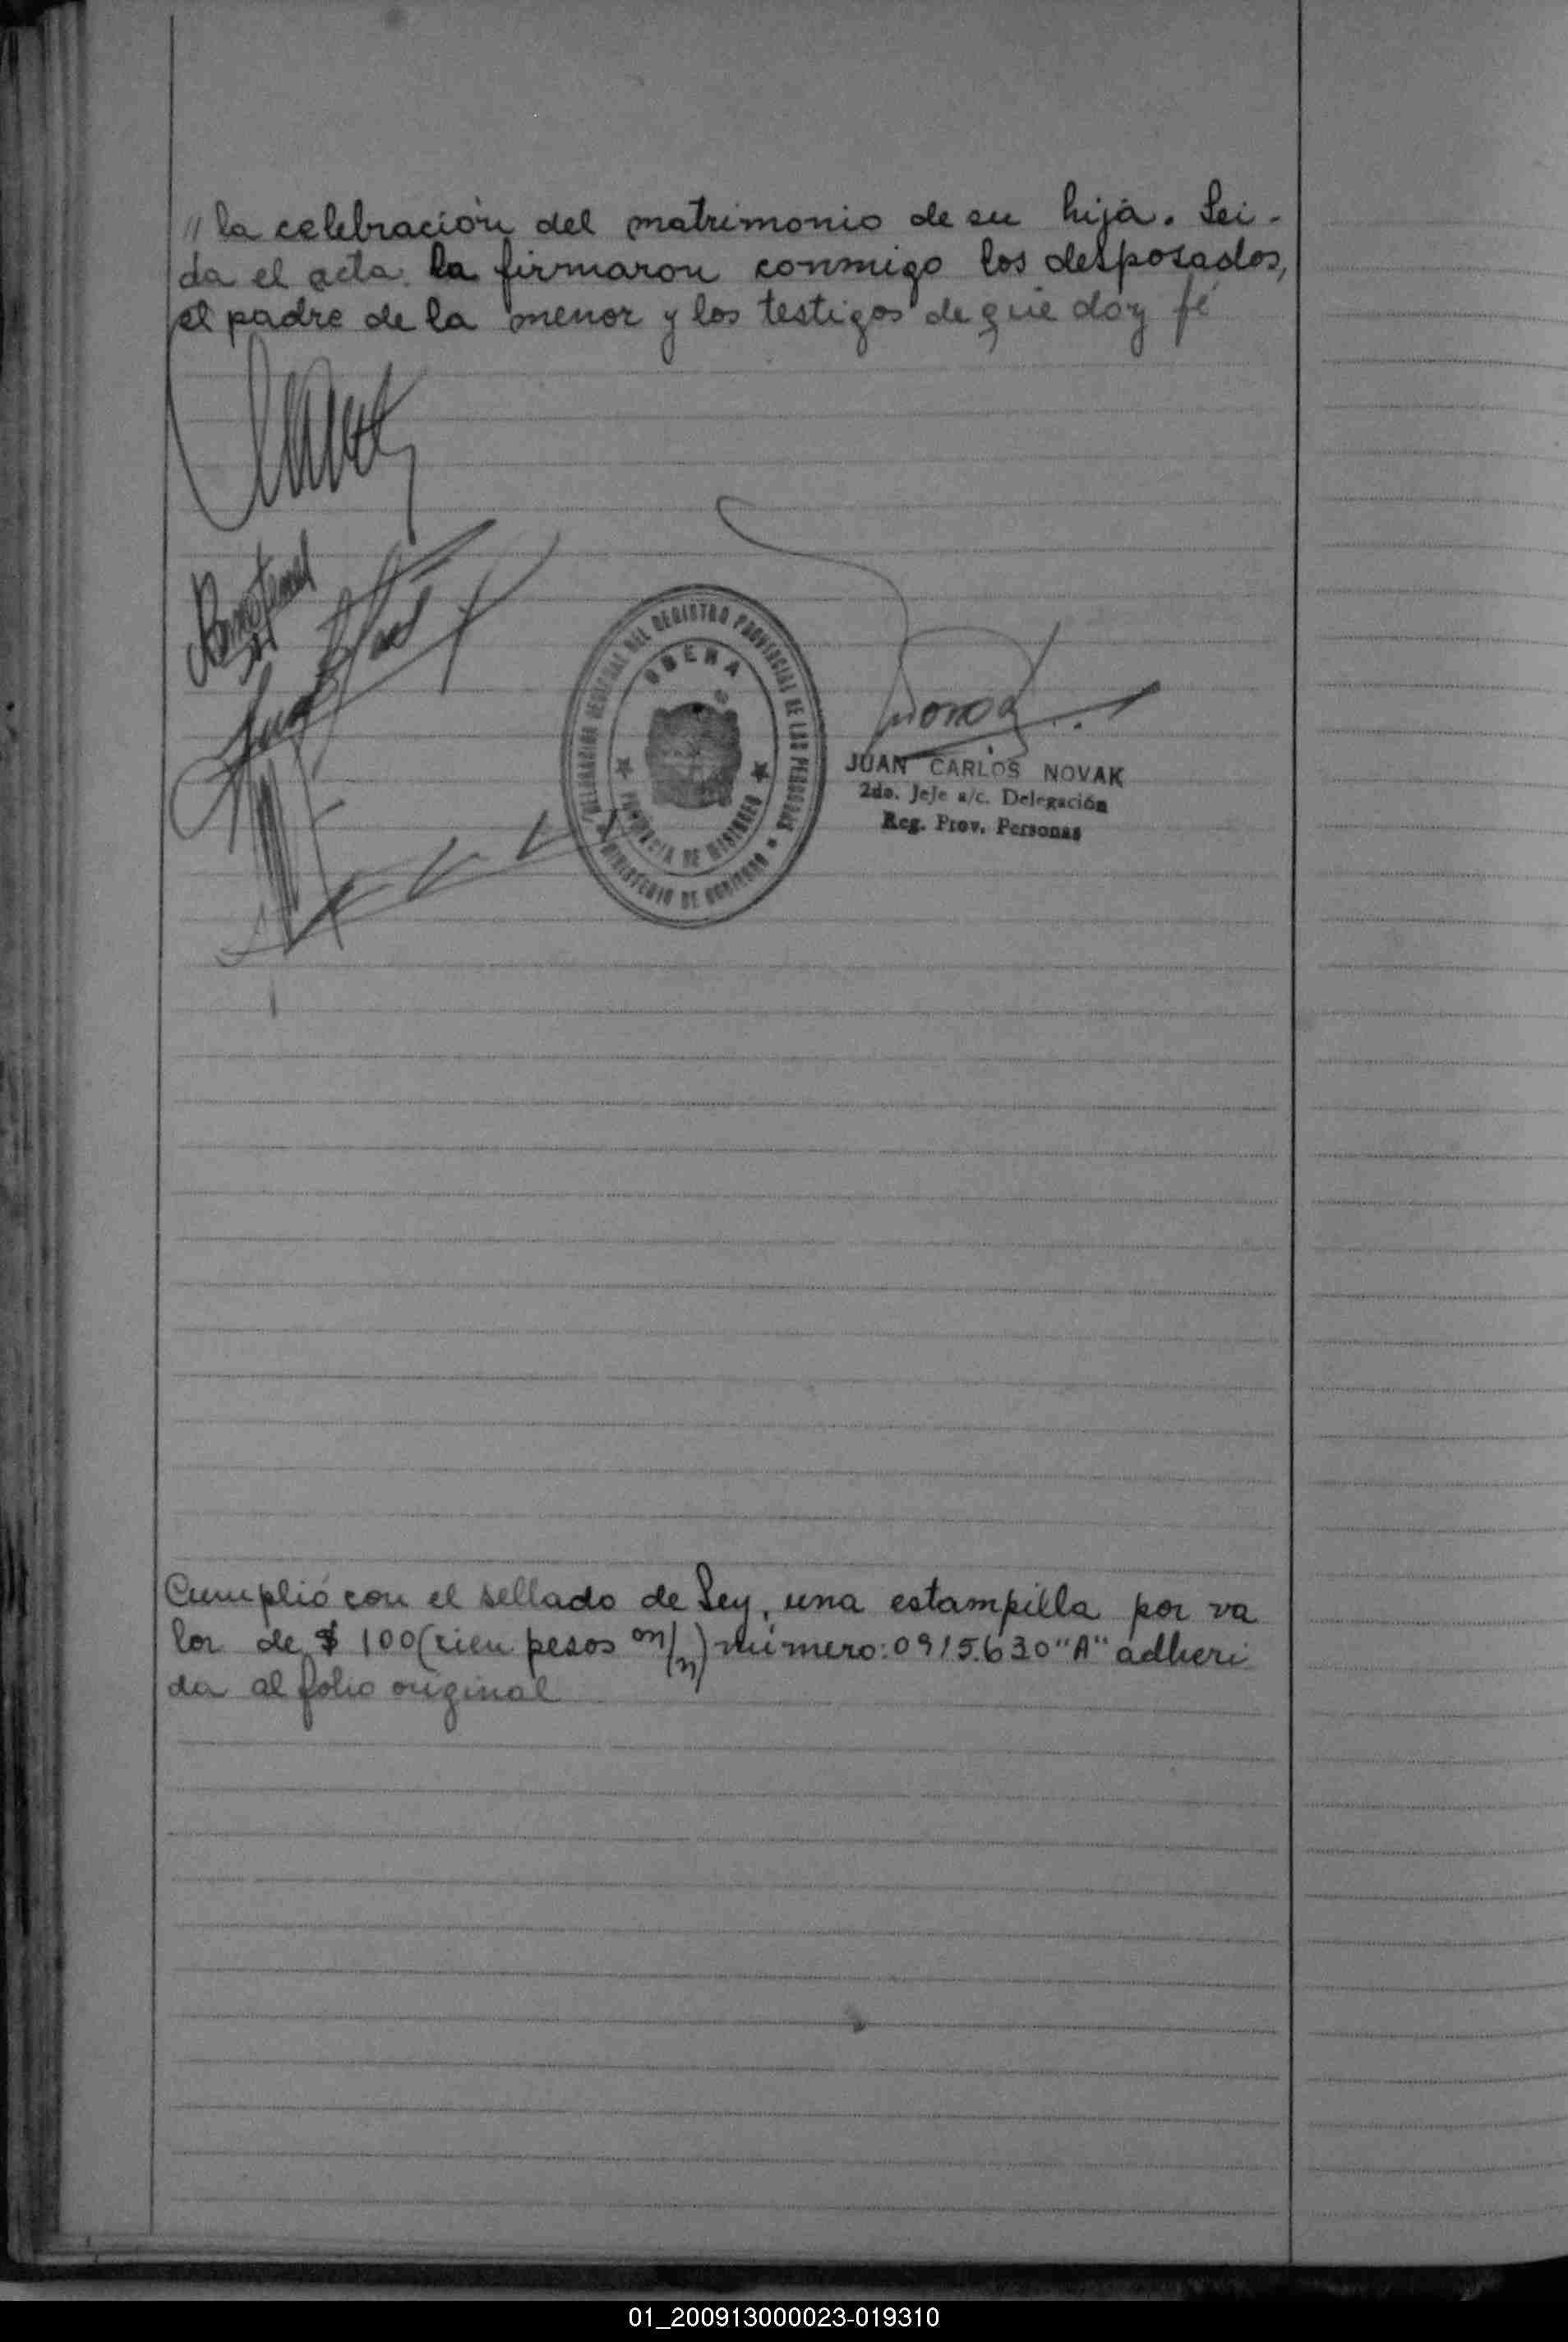 " la celebración del matrimonio de su hija. Lei-
da el acta la firmaron conmigo los desposados,
el padre de la menor y los testigos de que doy fé
DELEGACION REGIONAL DEL REGISTRO PROVINCIAL DE LAS PERSONAS
OBERA
PROVINCIA DE MISIONES
MINISTERIO DE GOBIERNO
JUAN CARLOS NOVAK
2do. Jefe a/c. Delegación
Reg. Prov. Personas
Cumplió con el sellado de Ley, una estampilla por va
lor de $ 100 (cien pesos m/n) número: 0915.630 "A" adheri
da al folio original
01_200913000023-019310